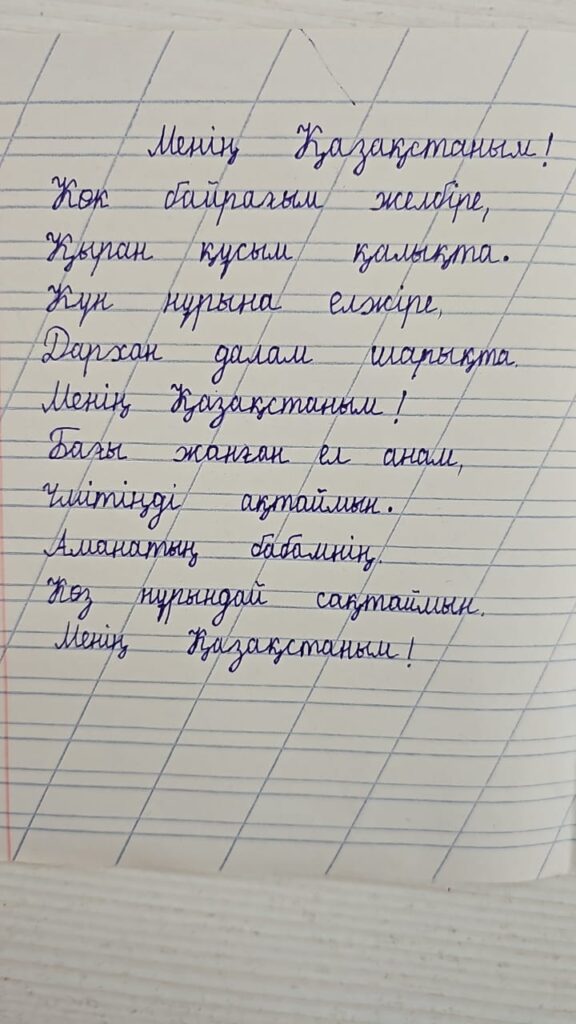 Менің Қазақстаным!
Көк байрағым желбіре,
Қыран құсым қалықта.
Күн нұрына елжіре,
Дархан далам шарықта.
Менің Қазақстаным!
Бағы жанған ел анам,
Үмітіңді ақтаймын.
Аманатың бабамнің.
Көз нұрындай сақтаймын.
Менің Қазақстаным!